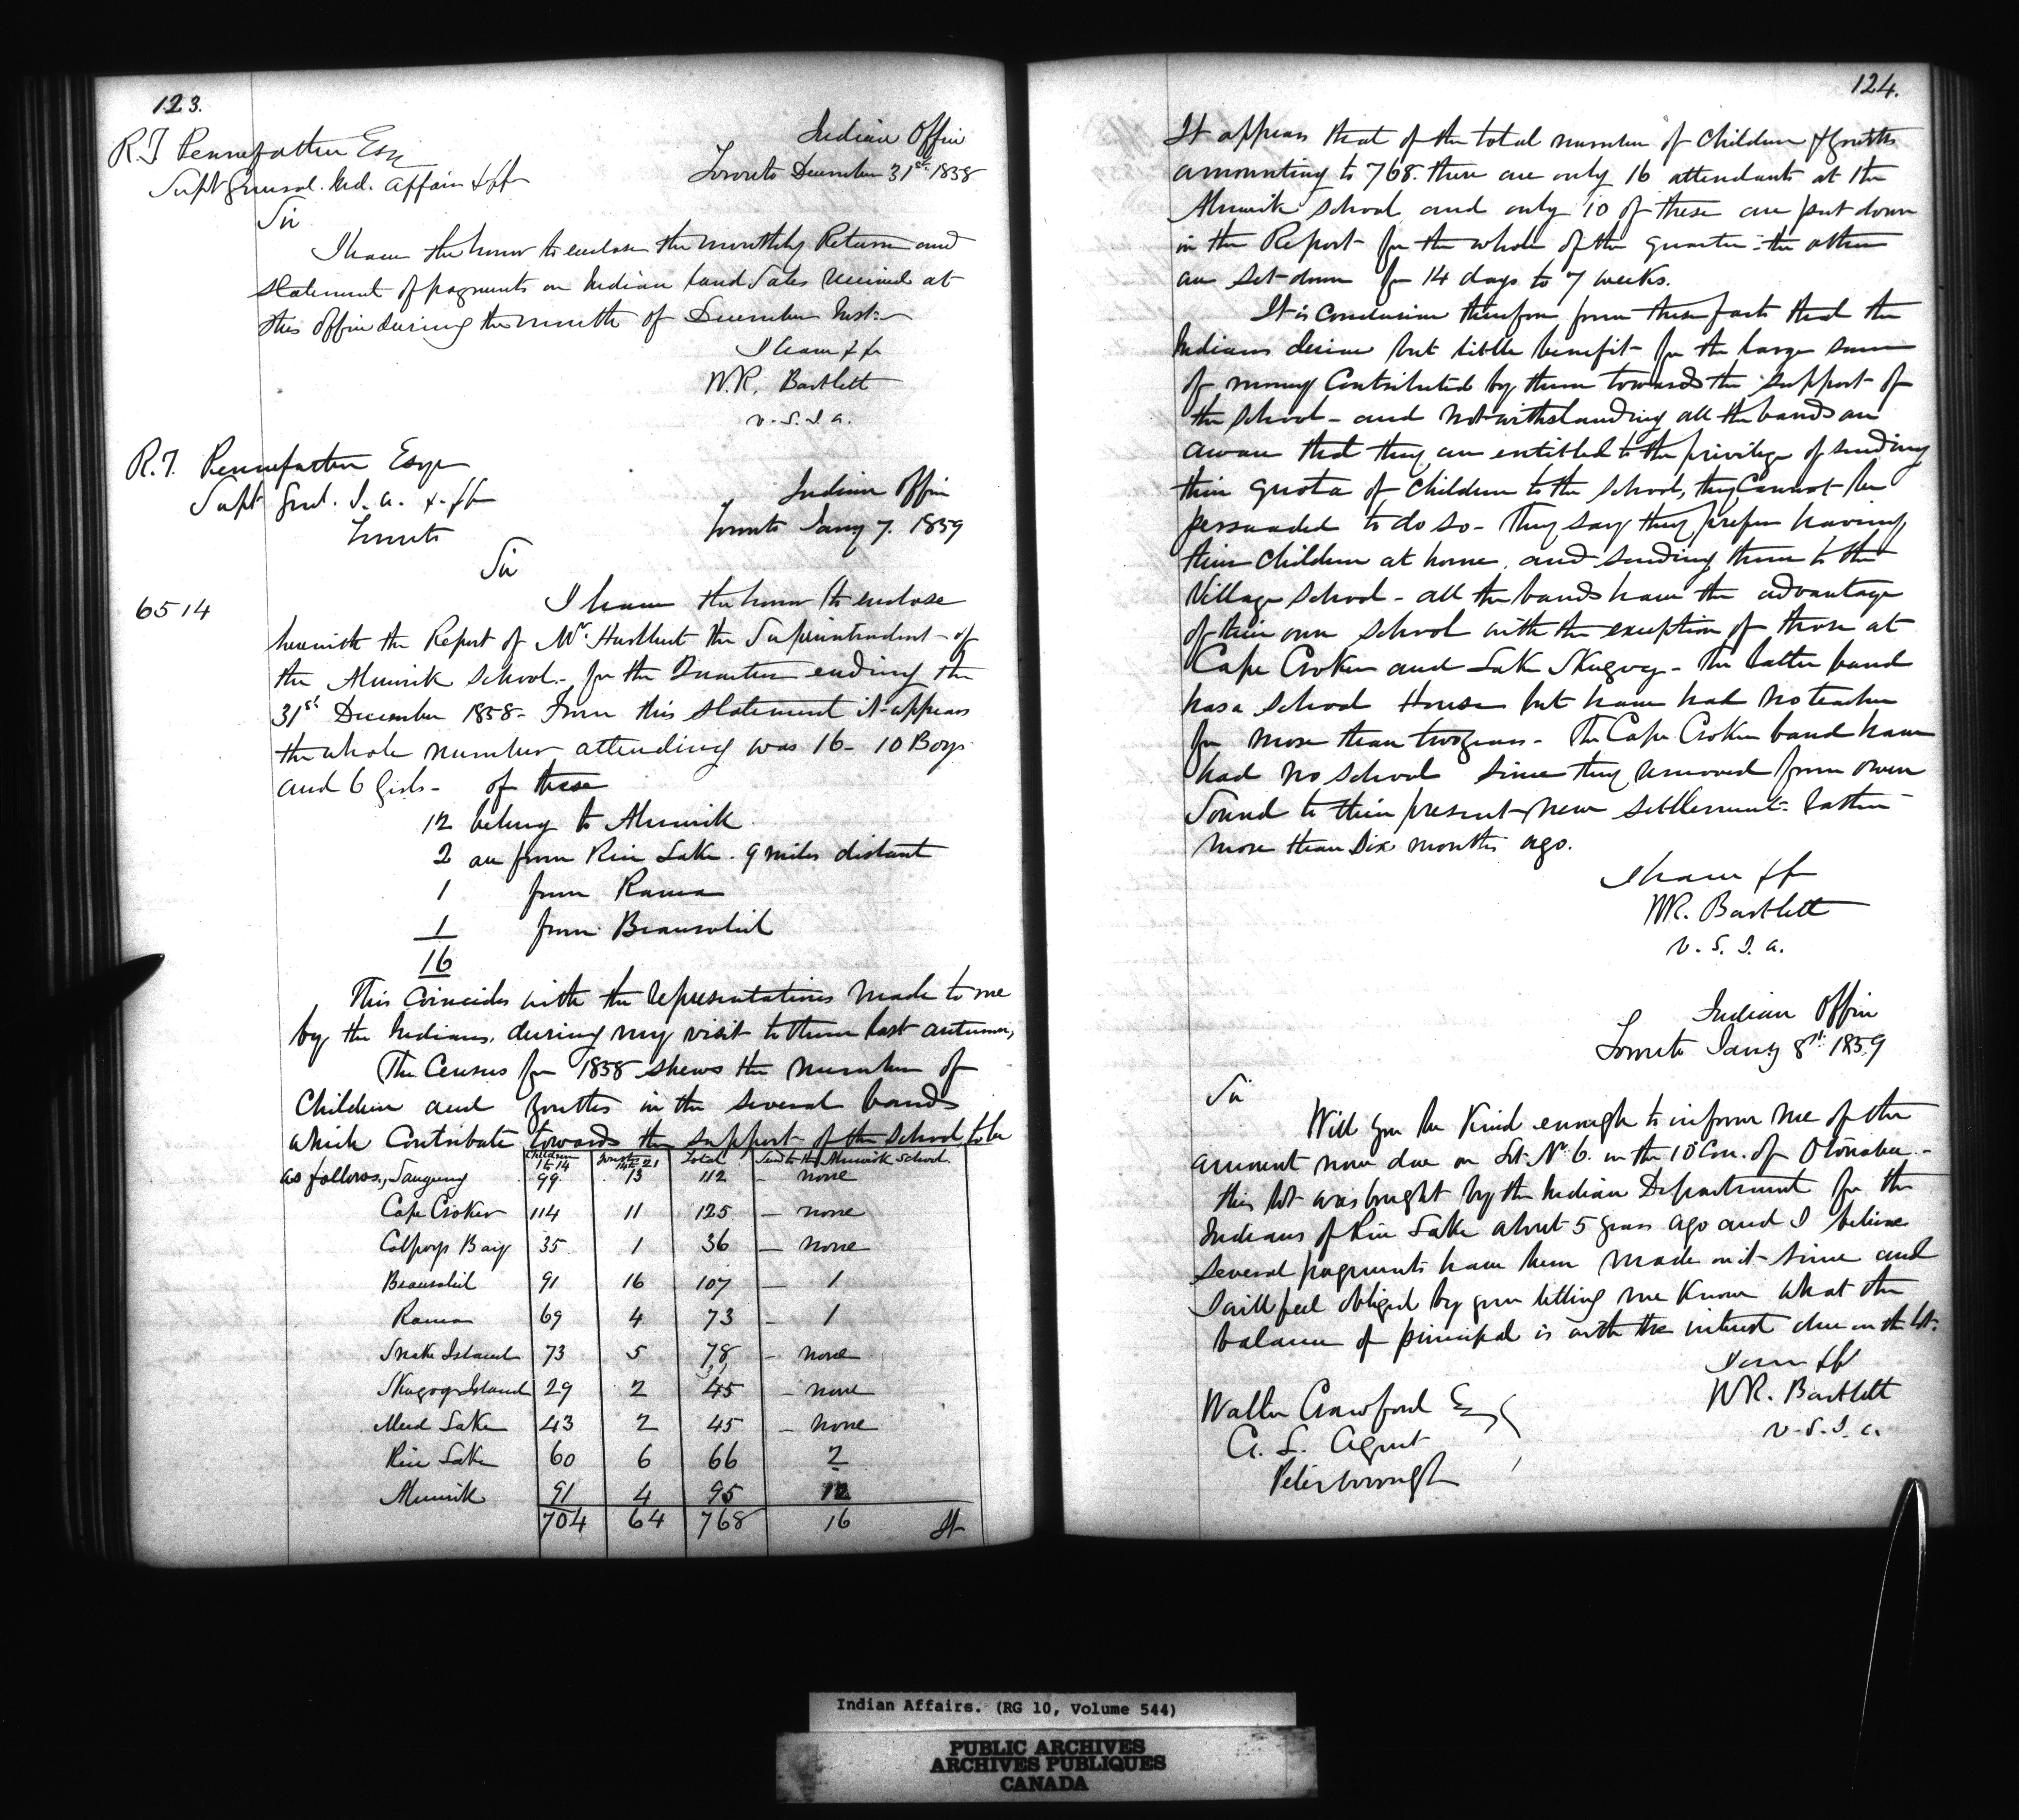 123.
R.T. Pennefather Esq
Supt General. Ind. Affairs &c &c
Indian Office
Toronto December 31st 1858
Sir
I have the honor to enclose the monthly Return and
statement of payments on Indian Land Sales received at
this office during the month of December Inst:
I have &c &c
W.R. Bartlett
V.S.I.A.
R.T. Pennefather Esqr
Supt Genl. I.A. &c &c
Toronto
Indian Office
Toronto Jany 7. 1859
Sir
6514
I have the honor to enclose
herewith the Report of Mr. Hurlburt the Superintendent of
the Alnwick School. for the Quarter ending the
31st December 1858 - From this statement it appears
the whole number attending was 16 - 10 Boys
and 6 Girls - of these
12 belong to Alnwick
2 are from Rice Lake. 9 miles distant
1 from Rama
1 from Beausoliel
16
This Coincides with the representations made to me
by the Indians, during my visit to them last autumn,
The Census for 1858 shews the number of
Children and youths in the several bands
which Contribute towards the support of the School, to be
as follows,
Children 1 to 14 | Youths 14 to 21 | Total | Send to the Alnwick School
Saugeeng 99 13 112 - none
Cape Croker 114 11 125 - none
Colpoys Bay 35 1 36 - none
Beausoliel 91 16 107 - 1
Rama 69 4 73 - 1
Snake Island 73 5 78 - none
Skugog Island 29 2 45 - none
Mud Lake 43 2 45 - none
Rice Lake 60 6 66 2
Alnwick 91 4 95 12
704 64 768 16
It
124.
It appears that of the total number of Children & youths
amounting to 768. there are only 16 attendants at the
Alnwick School and only 10 of these are put down
in the Report for the whole of the quarter: the others
are set down for 14 days to 7 weeks.
It is conclusive therefore from these facts that the
Indians derive but little benefit for the large sum
of money Contributed by them towards the support of
the School - and notwithstanding all the bands are
aware that they are entitled to the privilege of sending
their quota of Children to the School, they Cannot be
persuaded to do so - They say they prefer having
their Children at home, and sending them to the
Village School - all the bands have the advantage
of their own School with the exception of those at
Cape Croker and Lake Skugog - The latter band
has a School House but have had no teacher
for more than two years - The Cape Croker band have
had no School since they removed from Owen
Sound to their present new settlement. rather
more than Six months ago.
I have &c
WR. Bartlett
V.S.I.A.
Indian Office
Toronto Jany 8th 1859
Sir
Will you be Kind enough to inform me of the
amount now due on Lot No 6. in the 10 Con. of Otonabee -
this lot was bought by the Indian Department for the
Indians of Rice Lake about 5 years ago and I believe
several payments have been made on it since and
I will feel obliged by your letting me Know what the
balance of principal is with the interest due on the lot.
I am &c
WR. Bartlett
V.S.I.A.
Walter Crawford Esq
C. L. Agent
Peterborough
Indian Affairs. (RG 10, Volume 544)
PUBLIC ARCHIVES
ARCHIVES PUBLIQUES
CANADA